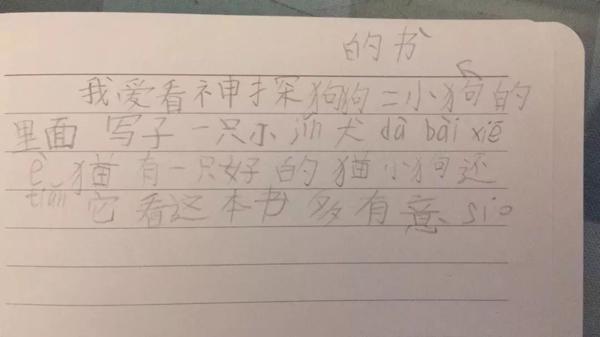 的书
我爱看神探狗狗二小狗的
里面 写子一只小 jín 犬 dǎ bài xié
è 猫 有一只好的猫小狗还
tiǎn 它 看这本书多有意 sio